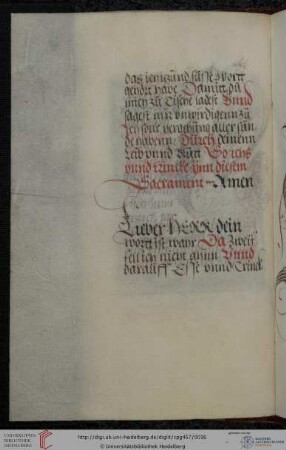 das jemgand süsse wortt
gehört habe Damitt da
mich zu Tische ladest Vnnd
sagest mir vnwirdigenn zu
Ich solle vergebung aller sün
de habenn Durch deinenn
leib vnnd blutt So ichs
vnnd trincke ynn disem
Sacrament Amen
Lieber HERR dein
wortt ist wahr Da Zweif
fell ich nicht ahnn Vnnd
darauff Esse vnnd Trinck
UNIVERSITÄTS-
BIBLIOTHEK
HEIDELBERG
http://digi.ub.uni-heidelberg.de/diglit/cpg457/0036
© Universitätsbibliothek Heidelberg